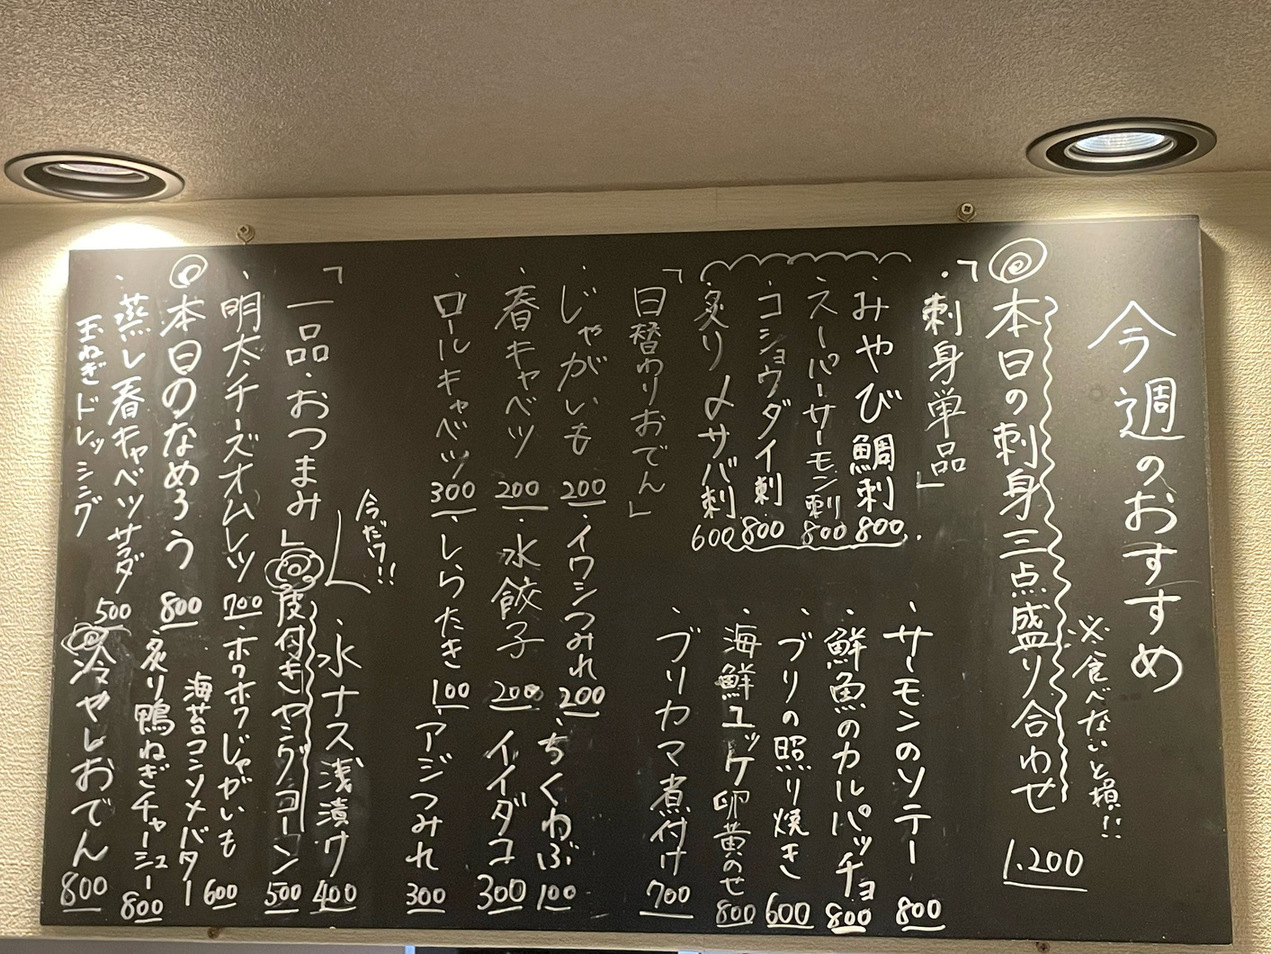 今週のおすすめ
※食べないと損!!
◎本日の刺身三点盛り合わせ 1,200
「刺身単品」
・みやび鯛刺 800
・スーパーサーモン刺 800
・コショウダイ刺 800
・炙り〆サバ刺 600
・サーモンのソテー 800
・鮮魚のカルパッチョ 800
・ブリの照り焼き 600
・海鮮ユッケ卵黄のせ 800
・ブリカマ煮付け 700
「日替わりおでん」
・じゃがいも 200
・イワシつみれ 200
・ちくわぶ 100
・春キャベツ 200
・水餃子 200
・イイダコ 300
・ロールキャベツ 300
・しらたき 100
・アジつみれ 300
「一品・おつまみ」
今だけ!!
・水ナス浅漬け 400
皮付きヤングコーン 500
・明太チーズオムレツ 700
・ホクホクじゃがいも
海苔コンソメバター 600
◎本日のなめろう 800
・炙り鴨ねぎチャーシュー 800
・蒸し春キャベツサラダ
玉ねぎドレッシング 500
◎冷やしおでん 800